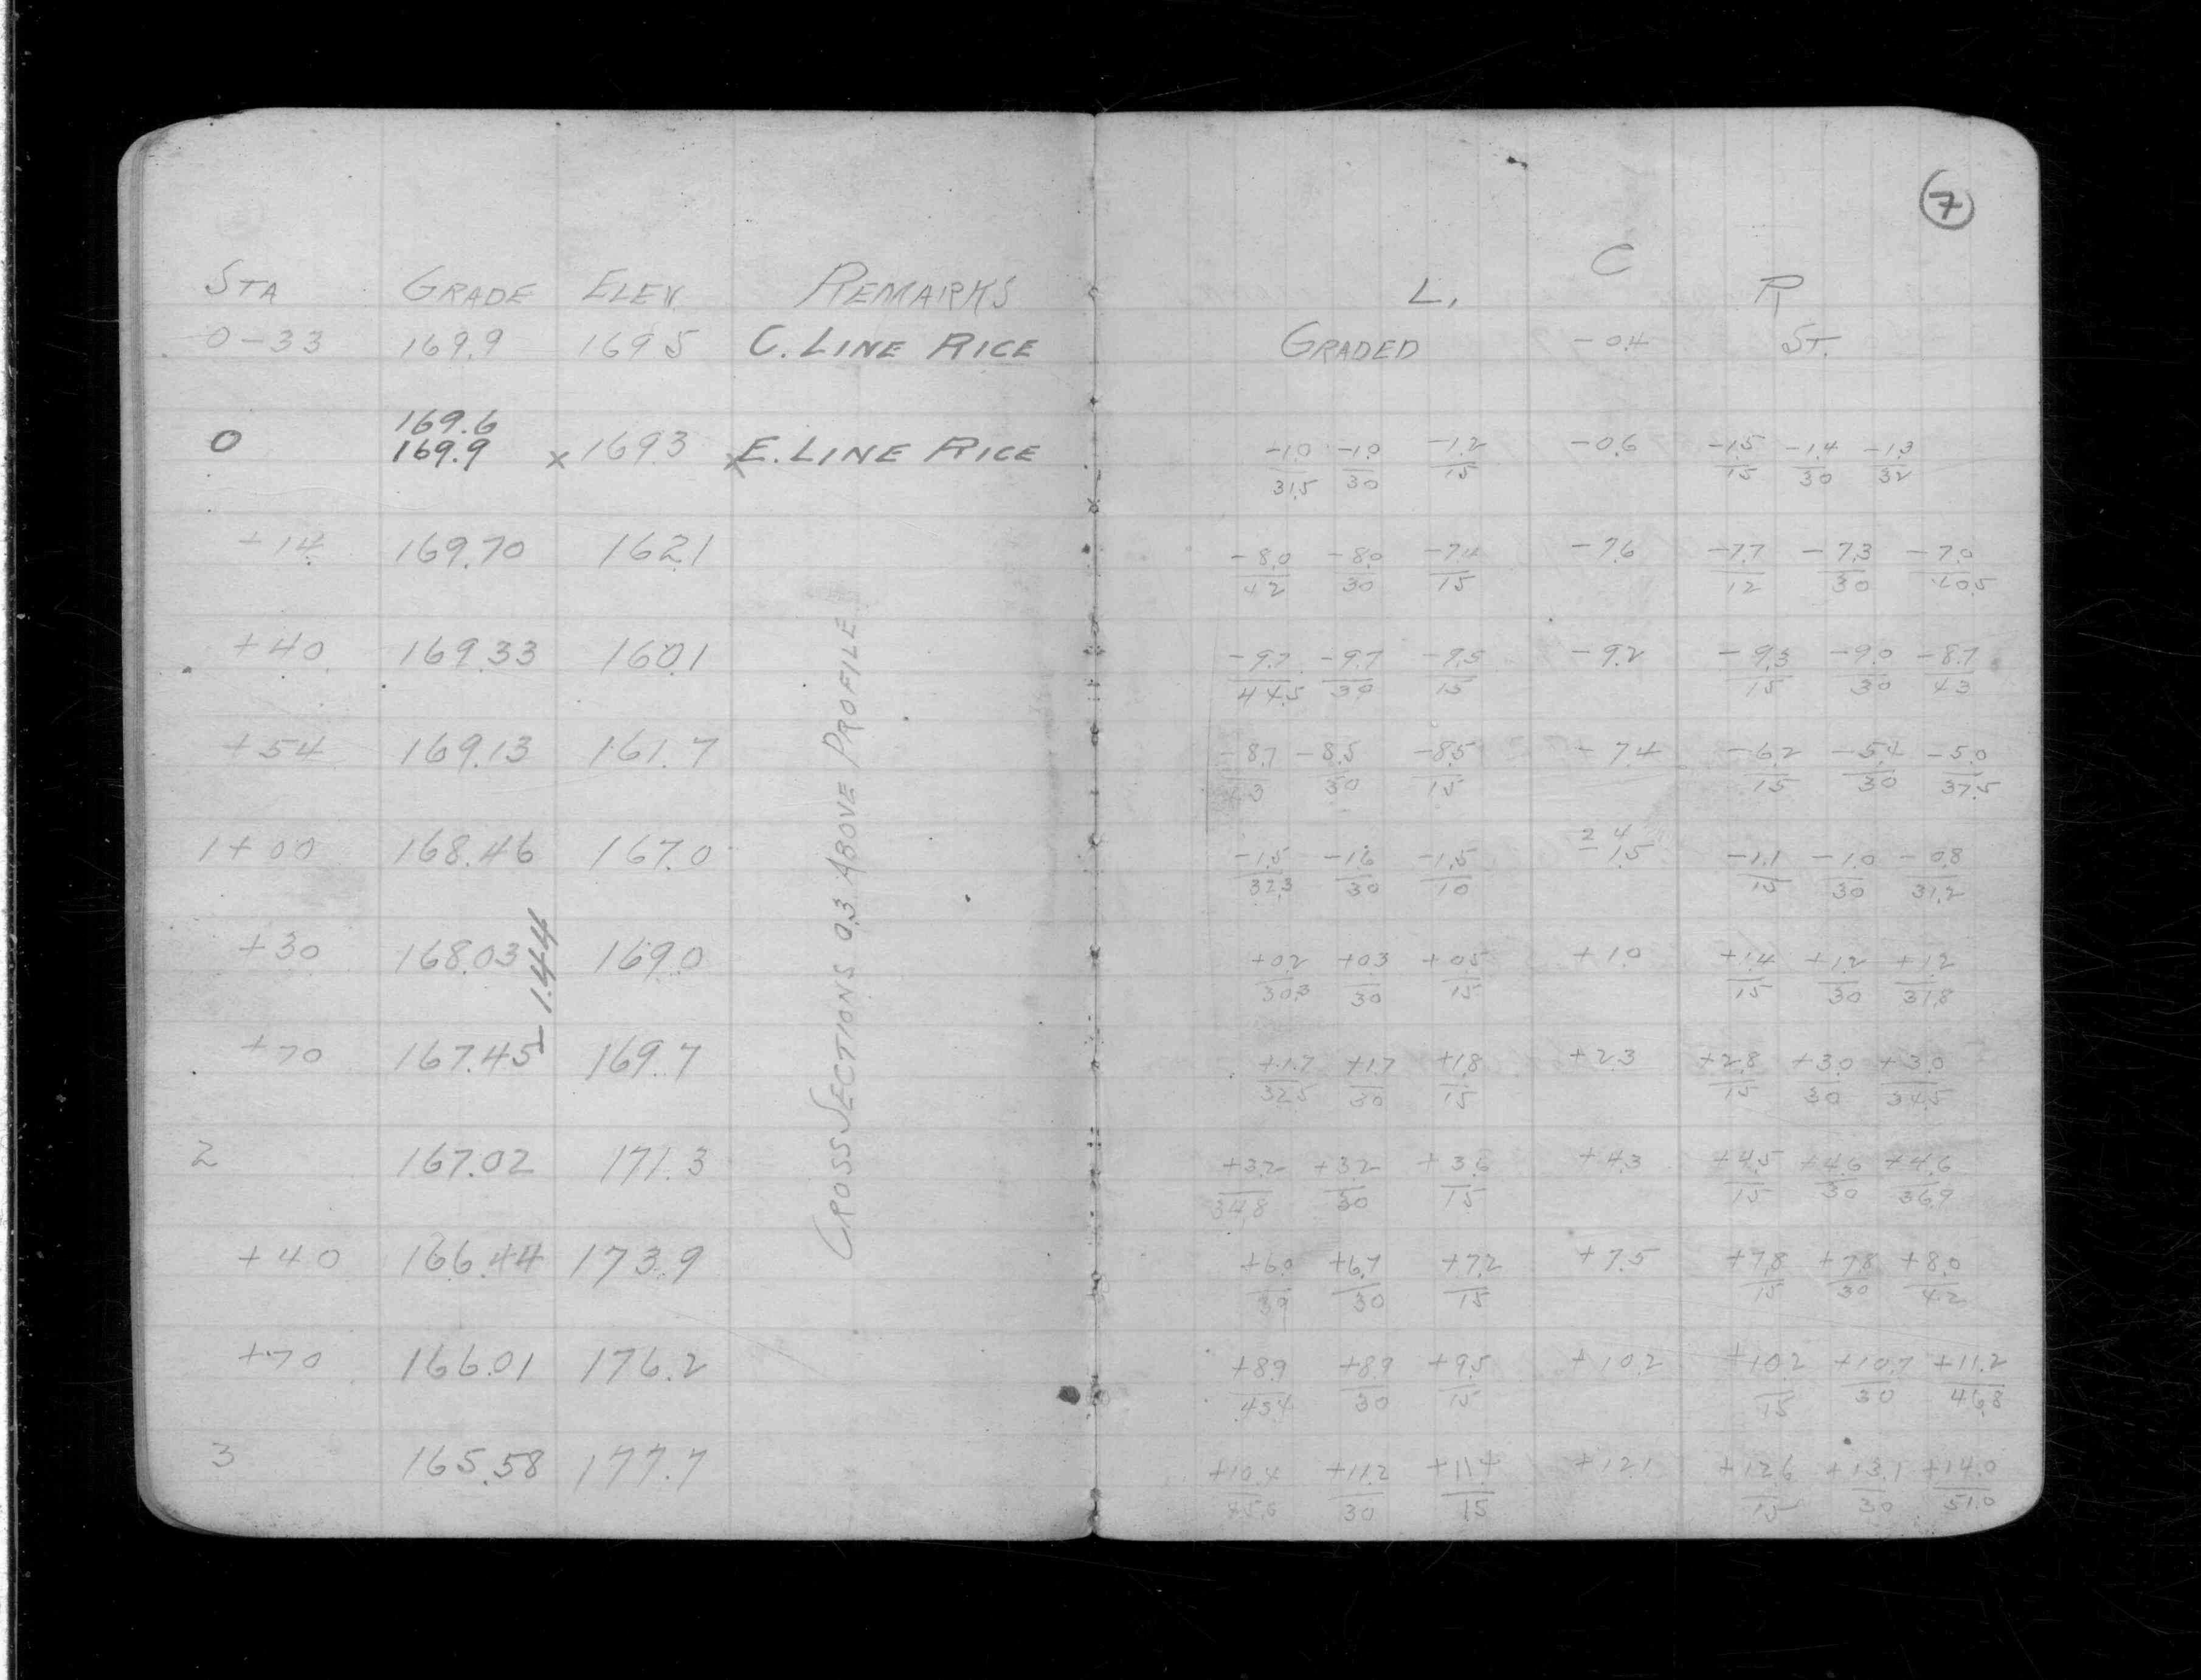 7
C
STA GRADE ELEV. REMARKS L. R
0-33 169.9 169.5 C. LINE RICE GRADED -0.4 ST.
169.6
0 169.9 x 169.3 x E. LINE RICE -1.0 -1.0 -1.2 -0.6 -1.5 -1.4 -1.3
31.5 30 15 15 30 32
+14 169.70 162.1 -8.0 -8.0 -7.4 -7.6 -7.7 -7.3 -7.0
42 30 15 12 30 40.5
+40 169.33 160.1 -9.7 -9.7 -9.5 -9.2 -9.3 -9.0 -8.7
44.5 30 15 15 30 43
+54 169.13 161.7 -8.7 -8.5 -8.5 -7.4 -6.2 -5.4 -5.0
43 30 15 15 30 37.5
2 4
1+00 168.46 167.0 -1.5 -1.6 -1.5 -1.5 -1.1 -1.0 -0.8
32.3 30 10 15 30 31.2
+30 168.03 169.0 +0.2 +0.3 +0.5 +1.0 +1.4 +1.2 +1.2
30.3 30 15 15 30 31.8
-1.44
+70 167.45 169.7 +1.7 +1.7 +1.8 +2.3 +2.8 +3.0 +3.0
32.5 30 15 15 30 34.5
2 167.02 171.3 +3.2 +3.2 +3.6 +4.3 +4.5 +4.6 +4.6
34.8 30 15 15 30 36.9
+40 166.44 173.9 +6.0 +6.7 +7.2 +7.5 +7.8 +7.8 +8.0
39 30 15 15 30 42
+70 166.01 176.2 +8.9 +8.9 +9.5 +10.2 +10.2 +10.7 +11.2
43.4 30 15 15 30 46.8
3 165.58 177.7 +10.4 +11.2 +11.4 +12.1 +12.6 +13.1 +14.0
45.6 30 15 15 30 51.0
CROSS SECTIONS 0.3 ABOVE PROFILE